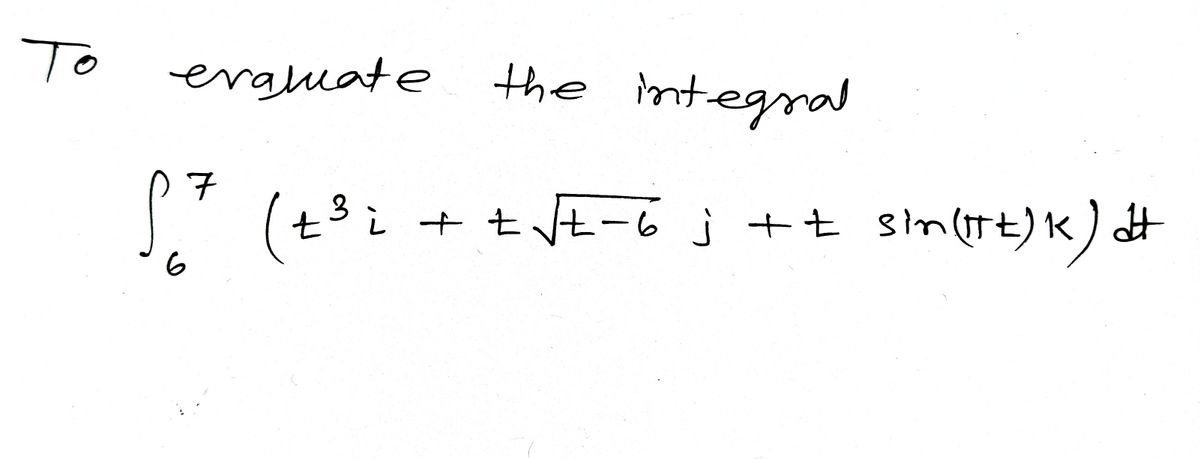 To evaluate the integral
∫₆⁷ (t³ i + t √(t-6) j + t sin(πt) k) dt